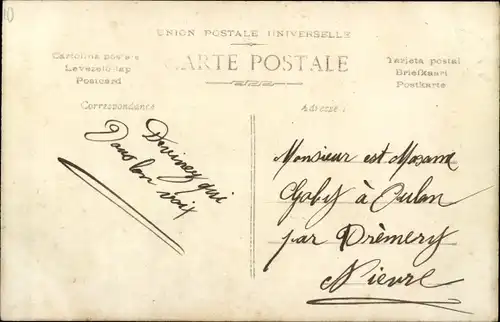 UNION POSTALE UNIVERSELLE
CARTE POSTALE
Cartolina postale
Levelező-lap
Postcard
Tarjeta postal
Briefkaart
Postkarte
Correspondance
Adresse :
Devinez qui
Dans bon
Monsieur est Madame
Gaby à Oulon
par Prémery
Nièvre